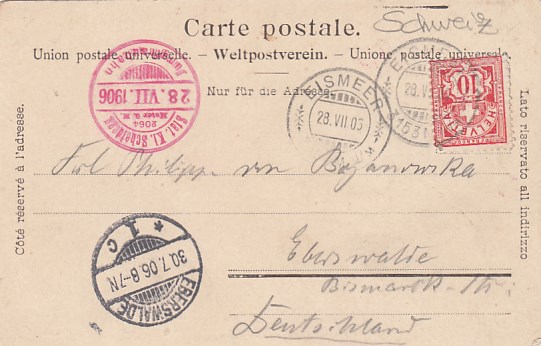 Carte postale.
Schweiz
Union postale universelle. – Weltpostverein. – Unione postale universale
Nur für die Adresse.
Côté réservé à l'adresse.
Lato riservato all indirizzo
Jungfraubahn
28. VII. 1906
2064 Meter ü. M.
Stat. Kl. Scheidegg
EISMEER
28. VII 06
EISMEER
28. V
10
HELVETIA
Frl. Philippe von Bojanowska
Eberswalde
Bismarck-Str.
Deutschland
EBERSWALDE
* 1 c
30.7.06.8-7N.